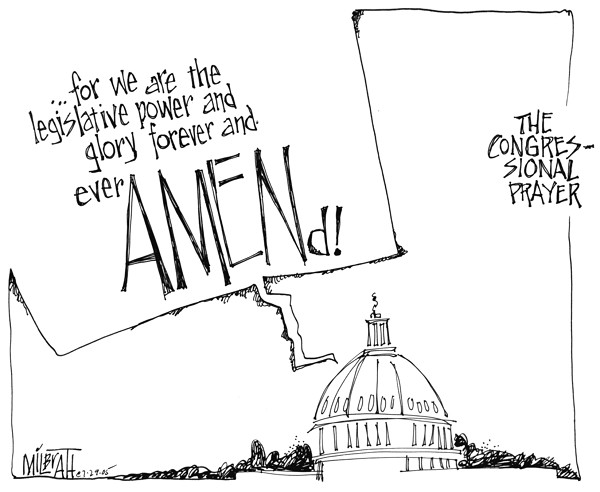 ...for we are the
legislative power and
glory forever and
ever AMENd!
THE
CONGRES-
SIONAL
PRAYER
MILBRATH